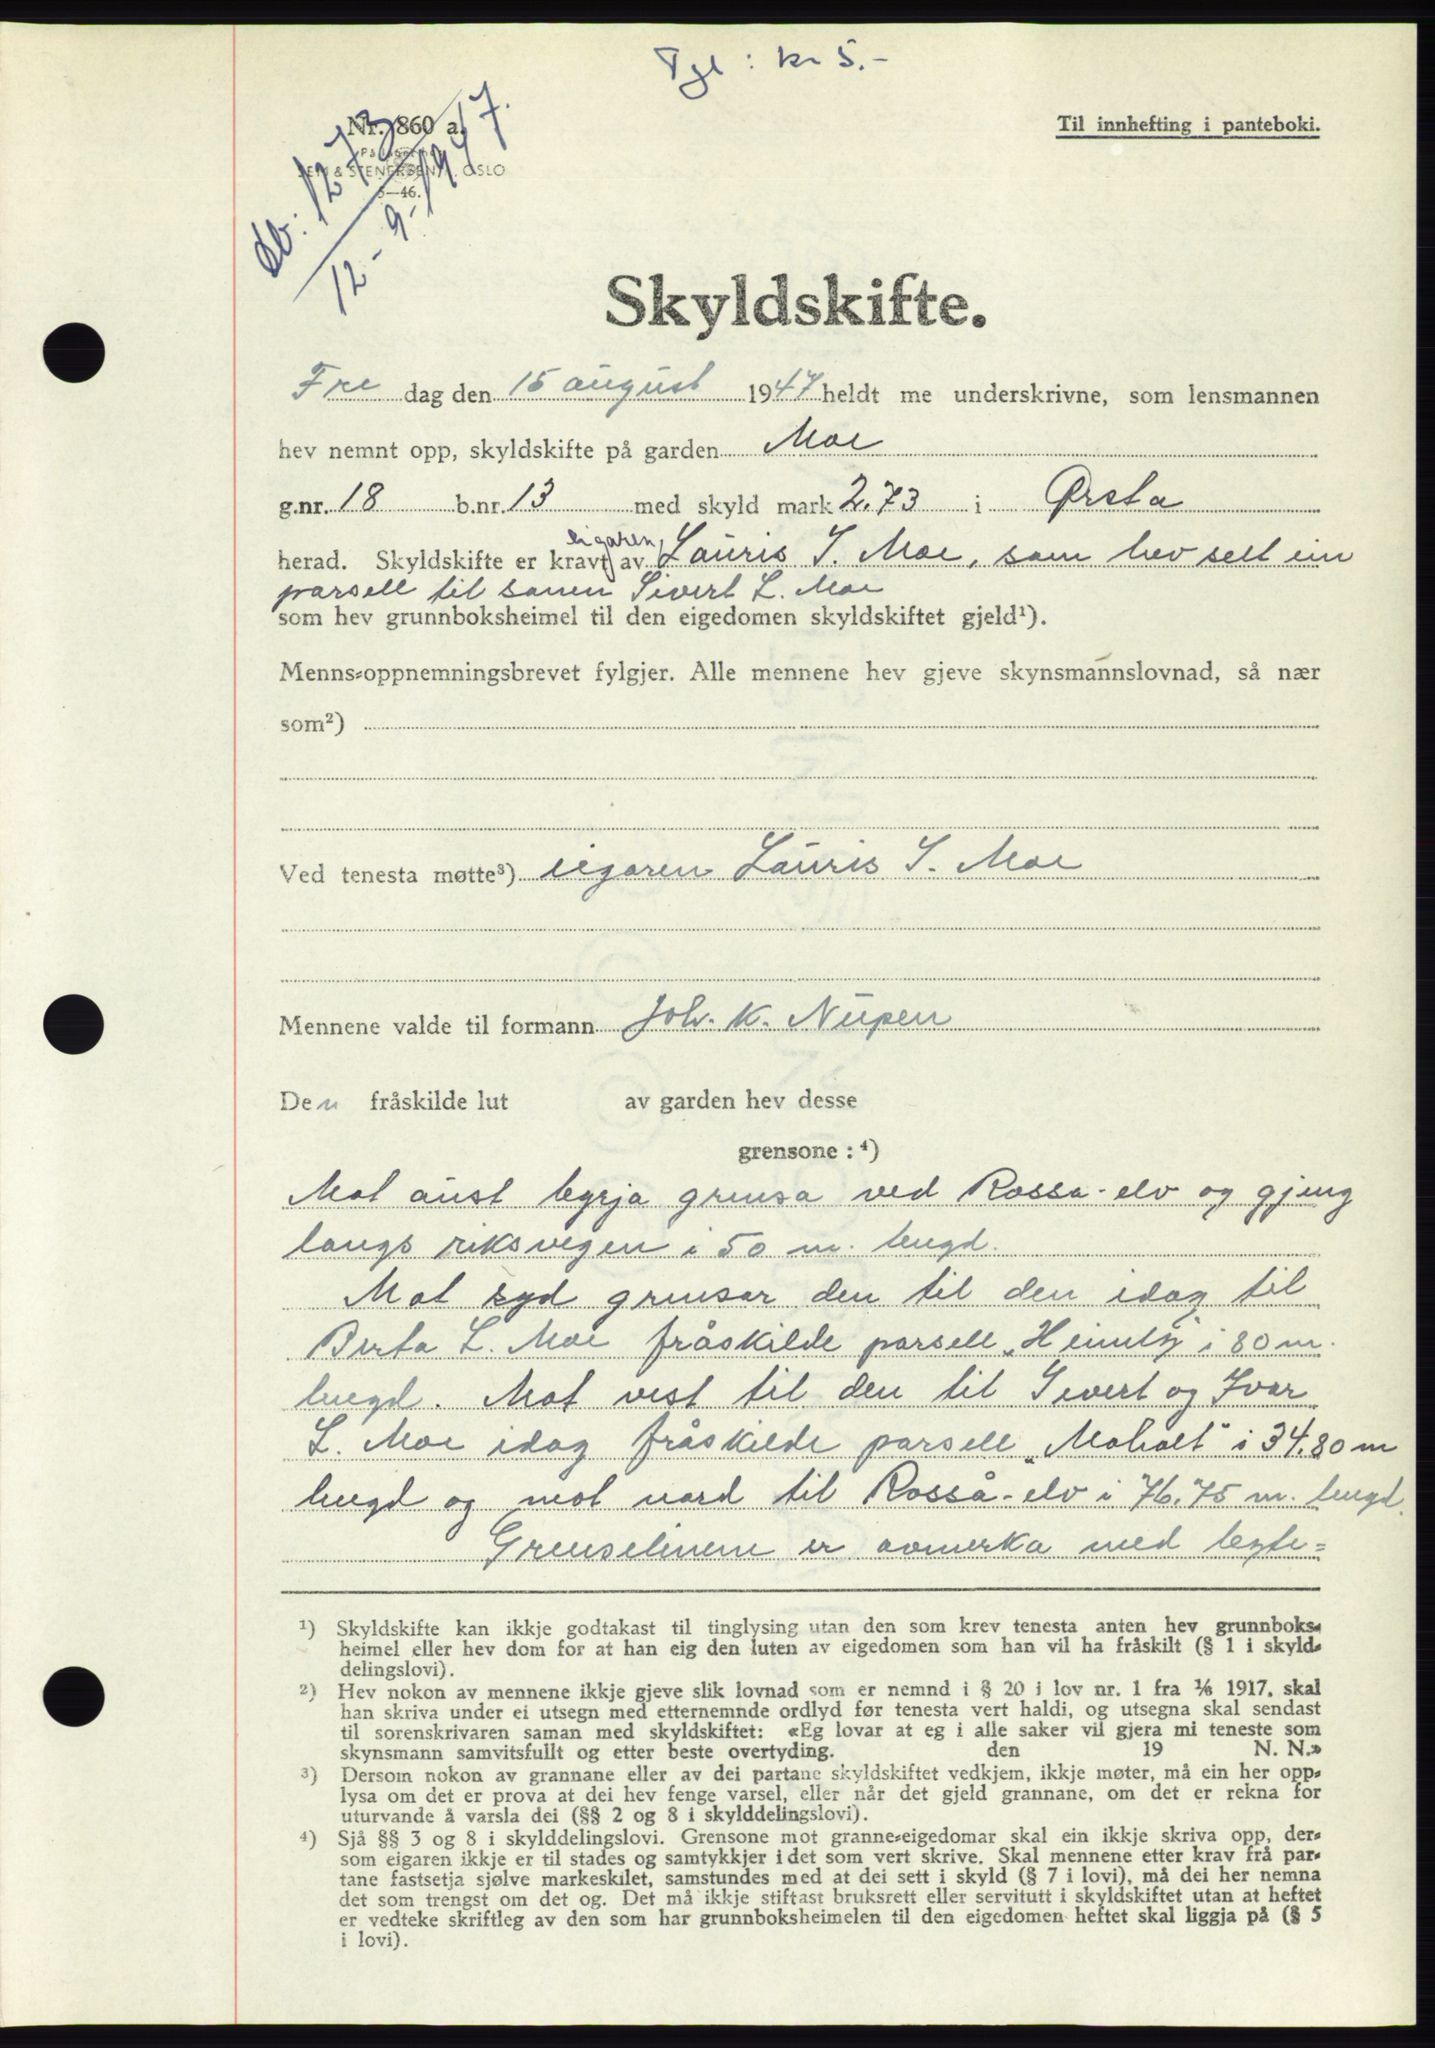 Tgl : kr 5.-
Nr. 860 a.
Til innhefting i panteboki.
SEM & STENERSEN A/S, OSLO
5—46.
Db: 1273
12-9-1947.
Skyldskifte.
Fre dag den 15 august 1947 heldt me underskrivne, som lensmannen
hev nemnt opp, skyldskifte på garden Moe
g.nr. 18 b.nr. 13 med skyld mark 2.73 i Ørsta
herad. Skyldskifte er kravt eigaren, av Lauris S. Moe, som hev selt ein
parsell til sonen Sivert L. Moe
som hev grunnboksheimel til den eigedomen skyldskiftet gjeld¹).
Menns-oppnemningsbrevet fylgjer. Alle mennene hev gjeve skynsmannslovnad, så nær
som²)
Ved tenesta møtte³) eigaren Lauris S. Moe
Mennene valde til formann Joh. K. Nupen
Den fråskilde lut av garden hev desse
grensone : ⁴)
Mot aust byrja grensa ved Rossa-elv og gjeng
langs riksvegen i 50 m. lengd.
Mot syd grensar den til den idag til
Berta L. Moe fråskilde parsell „Heimly" i 80 m.
lengd. Mot vest til den til Sivert og Ivar
L. Moe idag fråskilde parsell „Moholt" i 34.80 m
lengd og mot nord til Rosså-elv i 76.75 m. lengd.
Grenselinene er avmerka med byte=
¹) Skyldskifte kan ikkje godtakast til tinglysing utan den som krev tenesta anten hev grunnboks-
heimel eller hev dom for at han eig den luten av eigedomen som han vil ha fråskilt (§ 1 i skyld-
delingslovi).
²) Hev nokon av mennene ikkje gjeve slik lovnad som er nemnd i § 20 i lov nr. 1 fra ⅙ 1917, skal
han skriva under ei utsegn med etternemnde ordlyd før tenesta vert haldi, og utsegna skal sendast
til sorenskrivaren saman med skyldskiftet: «Eg lovar at eg i alle saker vil gjera mi teneste som
skynsmann samvitsfullt og etter beste overtyding. den 19 N. N.»
³) Dersom nokon av grannane eller av dei partane skyldskiftet vedkjem, ikkje møter, må ein her opp-
lysa om det er prova at dei hev fenge varsel, eller når det gjeld grannane, om det er rekna for
uturvande å varsla dei (§§ 2 og 8 i skylddelingslovi).
⁴) Sjå §§ 3 og 8 i skylddelingslovi. Grensone mot granne-eigedomar skal ein ikkje skriva opp, der-
som eigaren ikkje er til stades og samtykkjer i det som vert skrive. Skal mennene etter krav frå par-
tane fastsetja sjølve markeskilet, samstundes med at dei sett i skyld (§ 7 i lovi), må dei her nemna
det som trengst om det og. Det må ikkje stiftast bruksrett eller servitutt i skyldskiftet utan at heftet
er vedteke skriftleg av den som har grunnboksheimelen til den eigedomen heftet skal liggja på (§ 5
i lovi).